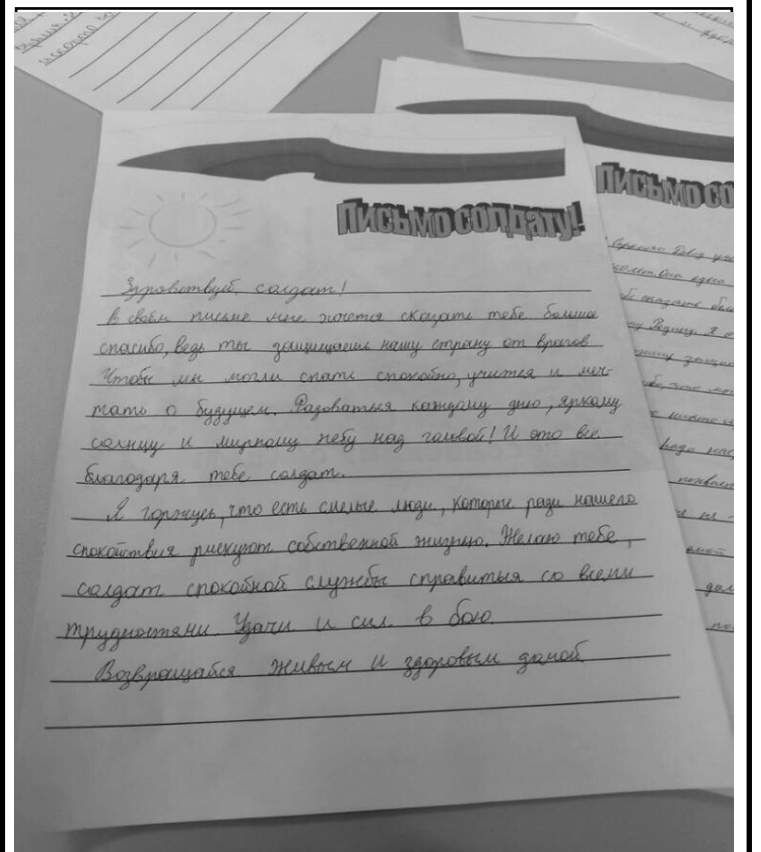 Письмо солдату!
Письмо со
Здравствуй, солдат!
В своём письме мне хочется сказать тебе большое
спасибо, ведь ты защищаешь нашу страну от врагов
Чтобы мы могли спать спокойно, учится и меч-
тать о будущем. Радоватья каждому дню, яркому
солнцу и мирному небу над головой! И это все
благодаря тебе солдат.
Я горжусь, что есть смелые люди, которые ради нашего
спокойствия рискуют собственной жизнью. Желаю тебе,
солдат спокойной службы справитья со всеми
трудностями. Удачи и сил в бою.
Возвращайся живым и здоровым домой